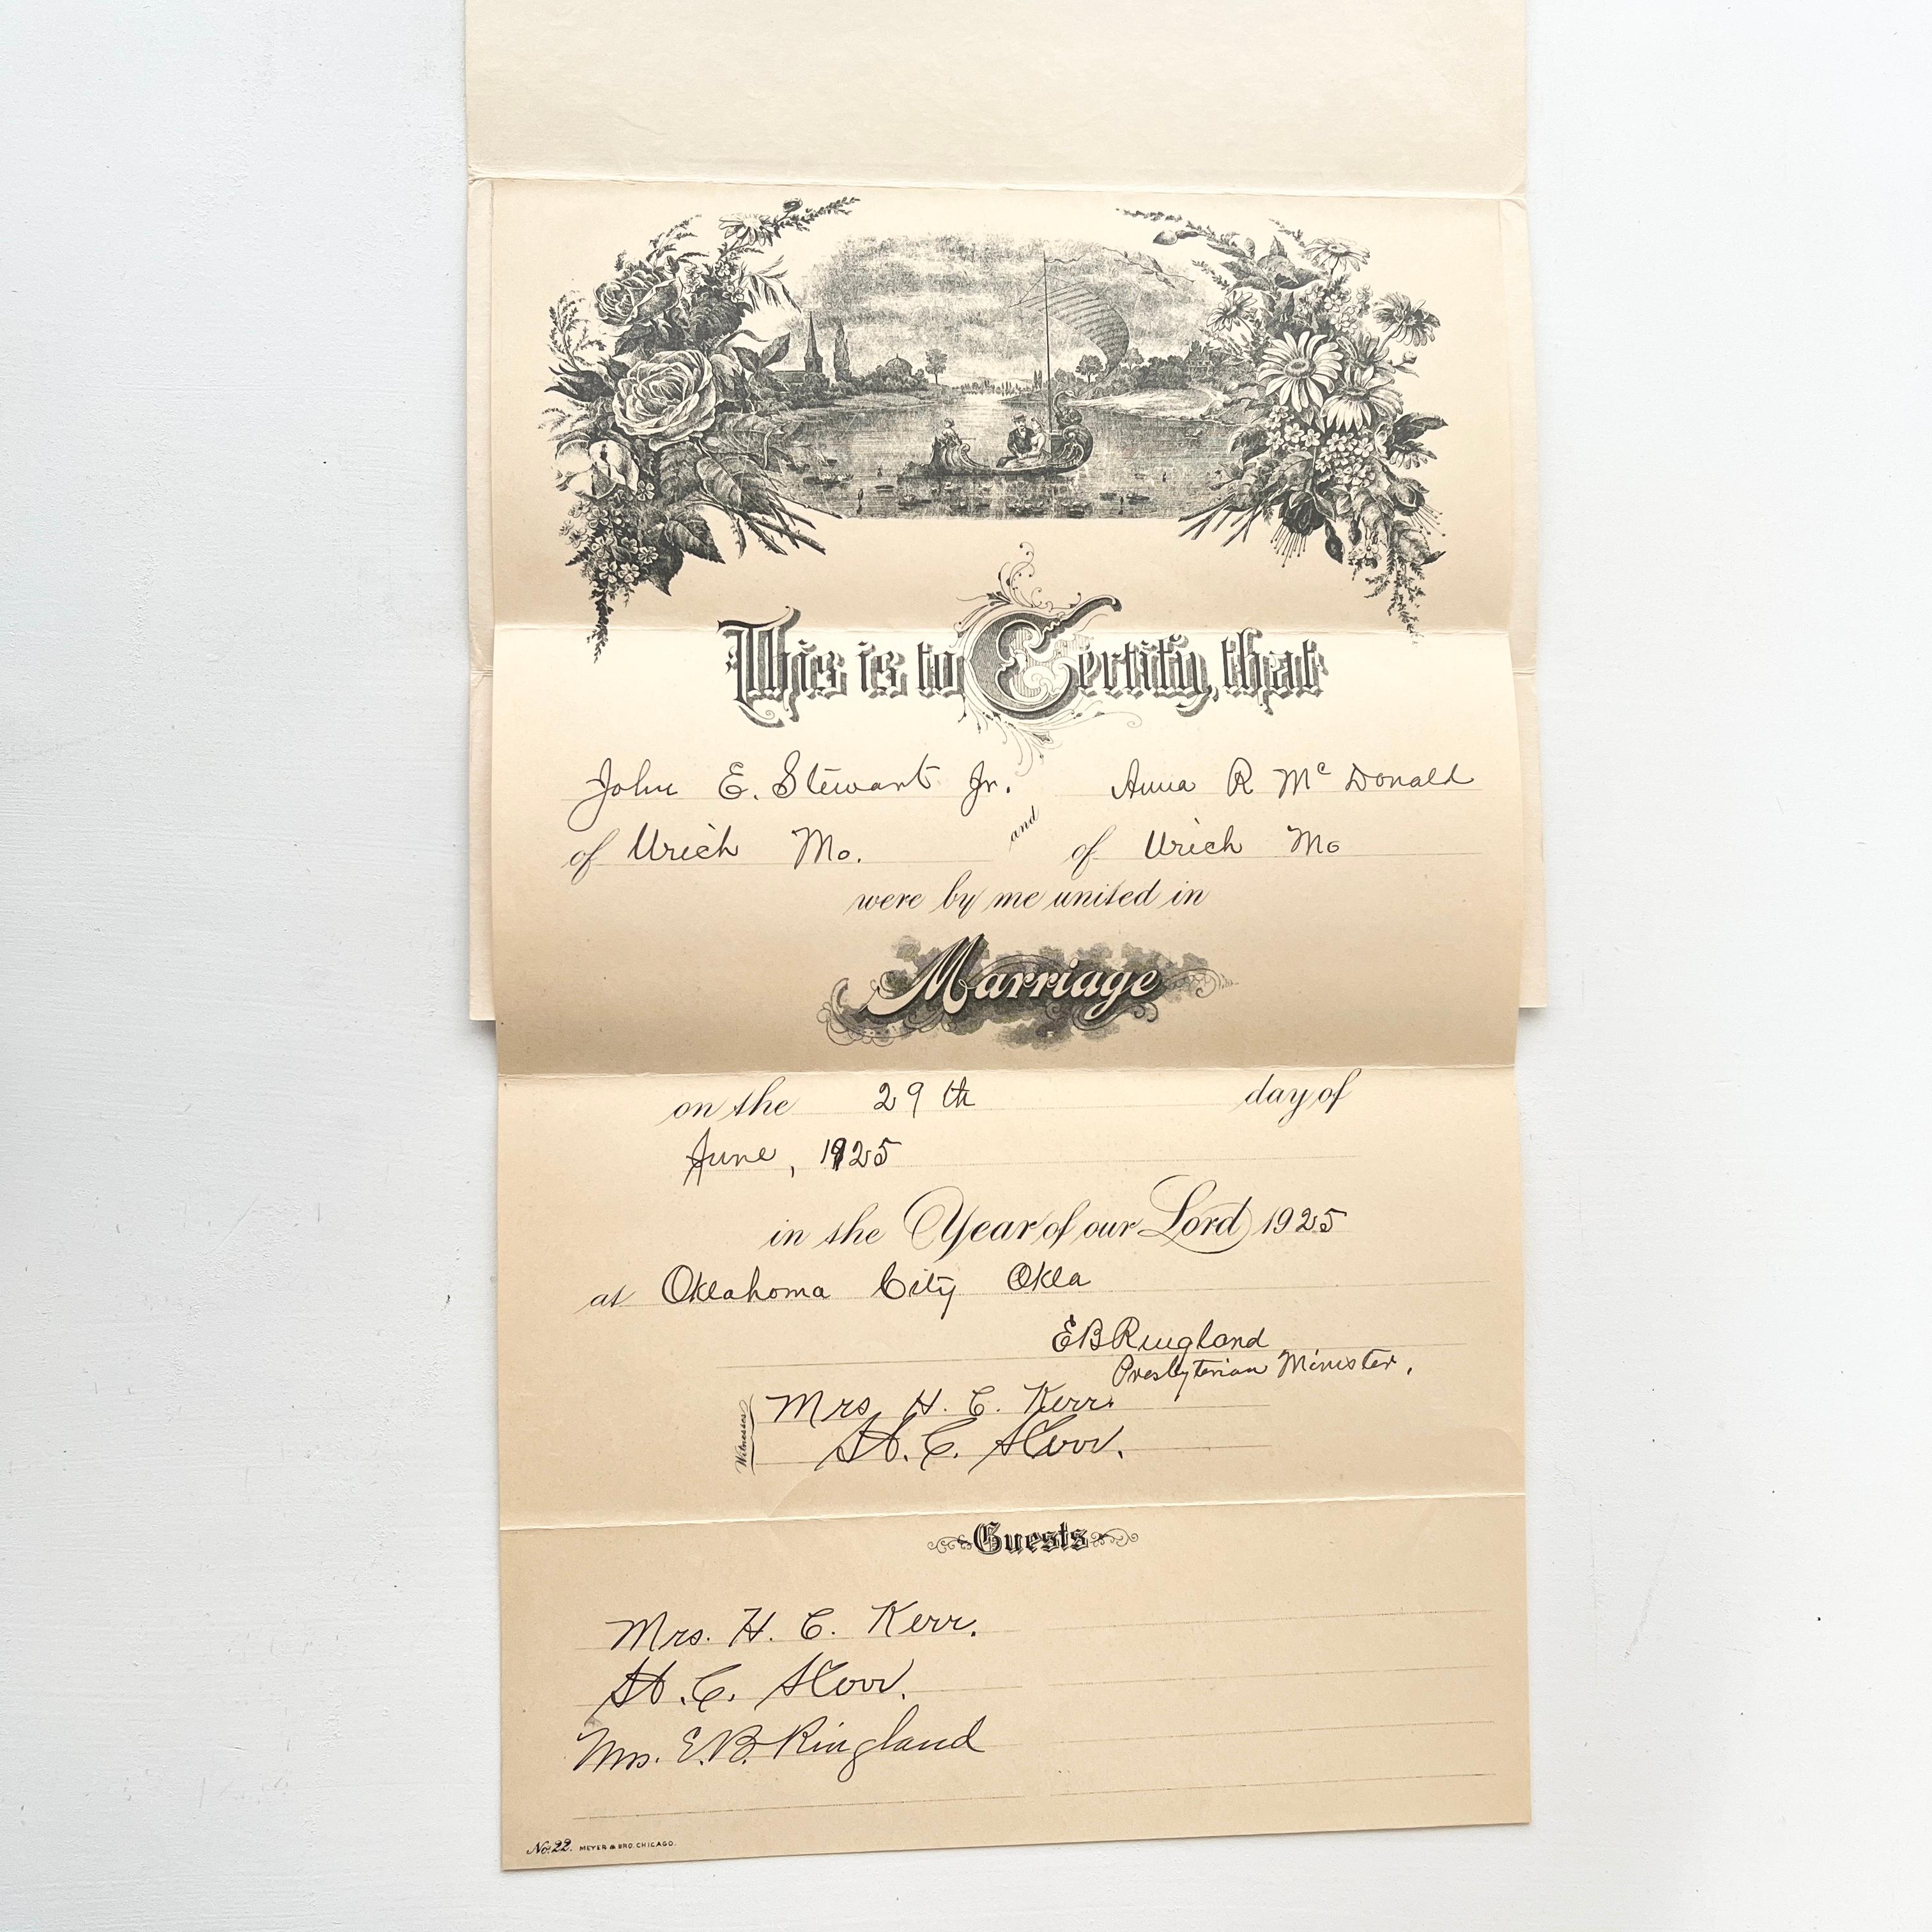 This is to Certify, that
John E. Stewart Jr. and Anna R McDonald
of Urich Mo. of Urich Mo
were by me united in
Marriage
on the 29th day of
June, 1925
in the Year of our Lord 1925
at Oklahoma City Okla
E B Ringland
Presbyterian Minister.
Witnesses
Mrs H. C. Kerr.
H. C. Kerr.
Guests
Mrs. H. C. Kerr.
H. C. Kerr.
Mrs. E. B. Ringland
No. 22. MEYER & BRO. CHICAGO.